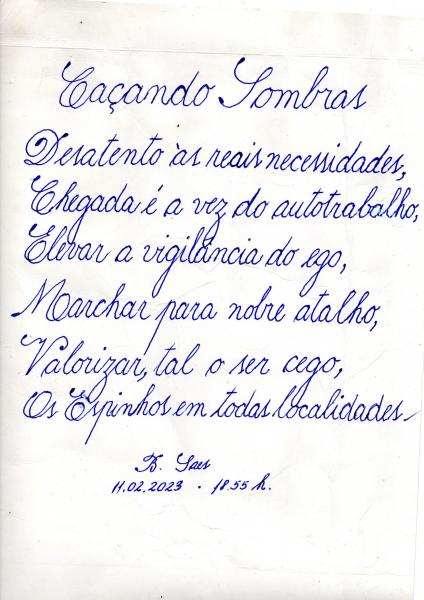 Caçando Sombras
Desatento às reais necessidades,
Chegada é a vez do autotrabalho,
Elevar a vigilância do ego,
Marchar para nobre atalho,
Valorizar, tal o ser cego,
Os Espinhos em todas localidades.
B. Saes
11.02.2023 - 18.55 h.